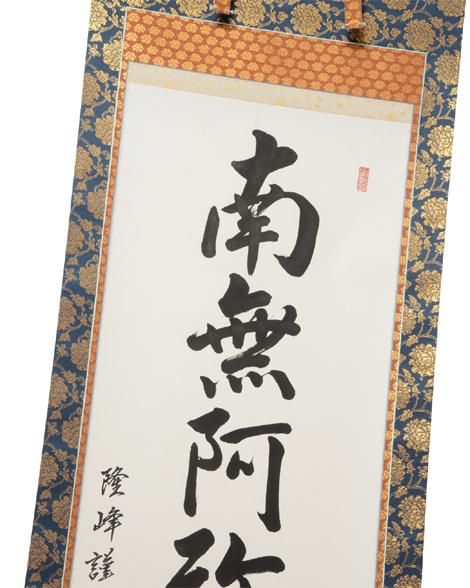 南無阿弥
隆峰謹